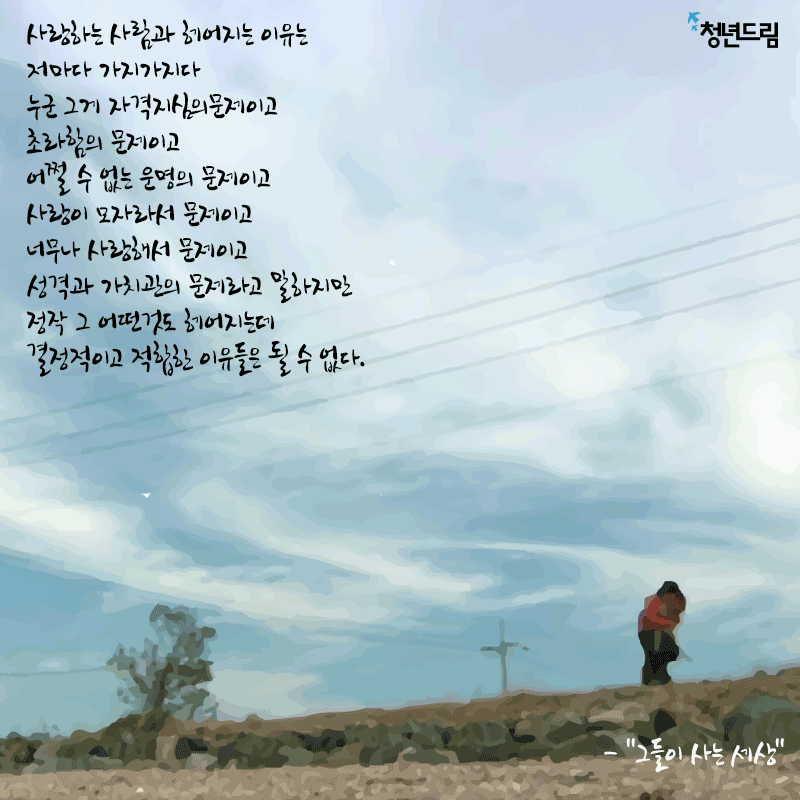 청년드림
사랑하는 사람과 헤어지는 이유는
저마다 가지가지다
누군 그게 자격지심의문제이고
초라함의 문제이고
어쩔 수 없는 운명의 문제이고
사랑이 모자라서 문제이고
너무나 사랑해서 문제이고
성격과 가치관의 문제라고 말하지만
정작 그 어떤것도 헤어지는데
결정적이고 적합한 이유들은 될 수 없다.
- "그들이 사는 세상"